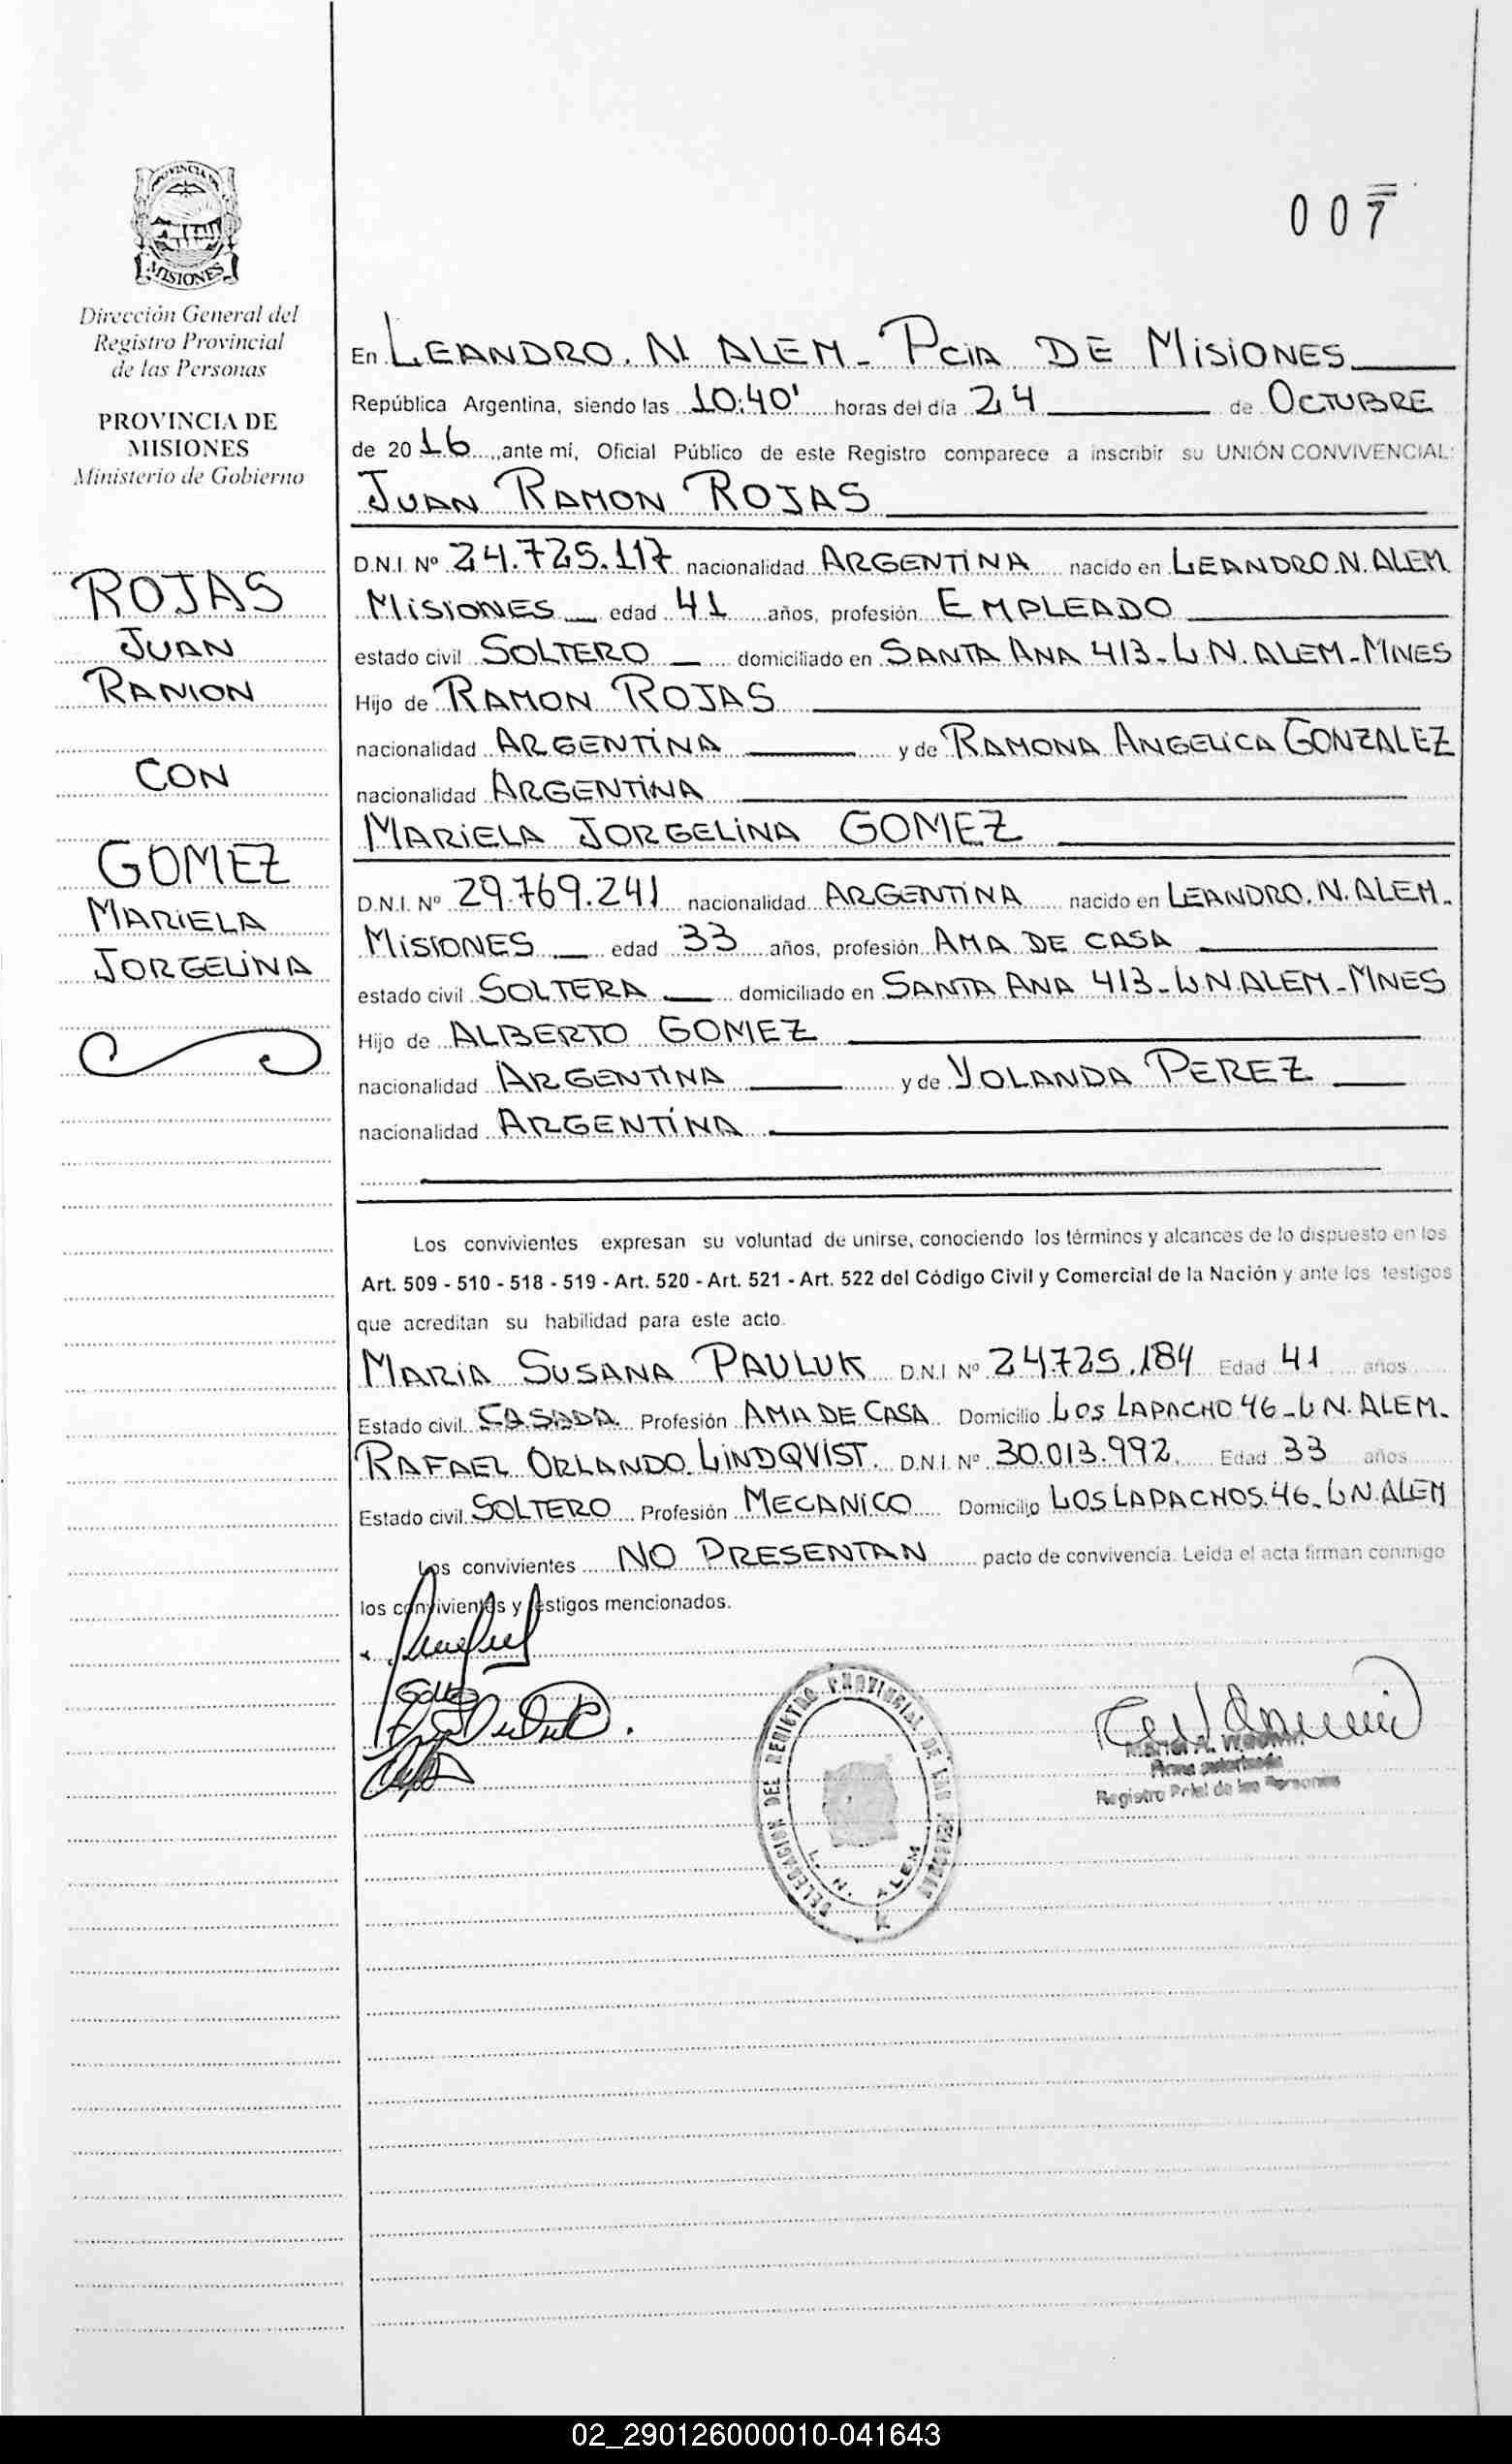 PROVINCIA DE
MISIONES
Dirección General del
Registro Provincial
de las Personas
PROVINCIA DE
MISIONES
Ministerio de Gobierno
ROJAS
JUAN
RAMON
CON
GOMEZ
MARIELA
JORGELINA
007
En LEANDRO. N. ALEM - PCIA DE MISIONES
República Argentina, siendo las 10:40' horas del día 24 de OCTUBRE
de 2016, ante mí, Oficial Público de este Registro comparece a inscribir su UNIÓN CONVIVENCIAL:
JUAN RAMON ROJAS
D.N.I. Nº 24.725.117 nacionalidad ARGENTINA nacido en LEANDRO.N.ALEM
MISIONES edad 41 años, profesión EMPLEADO
estado civil SOLTERO domiciliado en SANTA ANA 413-L.N.ALEM-MNES
Hijo de RAMON ROJAS
nacionalidad ARGENTINA y de RAMONA ANGELICA GONZALEZ
nacionalidad ARGENTINA
MARIELA JORGELINA GOMEZ
D.N.I. Nº 29.769.241 nacionalidad ARGENTINA nacido en LEANDRO.N.ALEM.
MISIONES edad 33 años, profesión AMA DE CASA
estado civil SOLTERA domiciliado en SANTA ANA 413-L.N.ALEM-MNES
Hijo de ALBERTO GOMEZ
nacionalidad ARGENTINA y de YOLANDA PEREZ
nacionalidad ARGENTINA
Los convivientes expresan su voluntad de unirse, conociendo los términos y alcances de lo dispuesto en los
Art. 509 - 510 - 518 - 519 - Art. 520 - Art. 521 - Art. 522 del Código Civil y Comercial de la Nación y ante los testigos
que acreditan su habilidad para este acto.
MARIA SUSANA PAULUK D.N.I Nº 24.725.184 Edad 41 años
Estado civil CASADA Profesión AMA DE CASA Domicilio LOS LAPACHO 46-L.N.ALEM.
RAFAEL ORLANDO LINDQVIST. D.N.I. Nº 30.013.992. Edad 33 años
Estado civil SOLTERO Profesión MECANICO Domicilio LOS LAPACHOS.46-L.N.ALEM
Los convivientes NO PRESENTAN pacto de convivencia. Leida el acta firman conmigo
los convivientes y testigos mencionados.
DELEGACION DEL REGISTRO PROVINCIAL DE LAS PERSONAS
L. N. ALEM
Firma autorizada
Registro Prial de las Personas
02_290126000010-041643